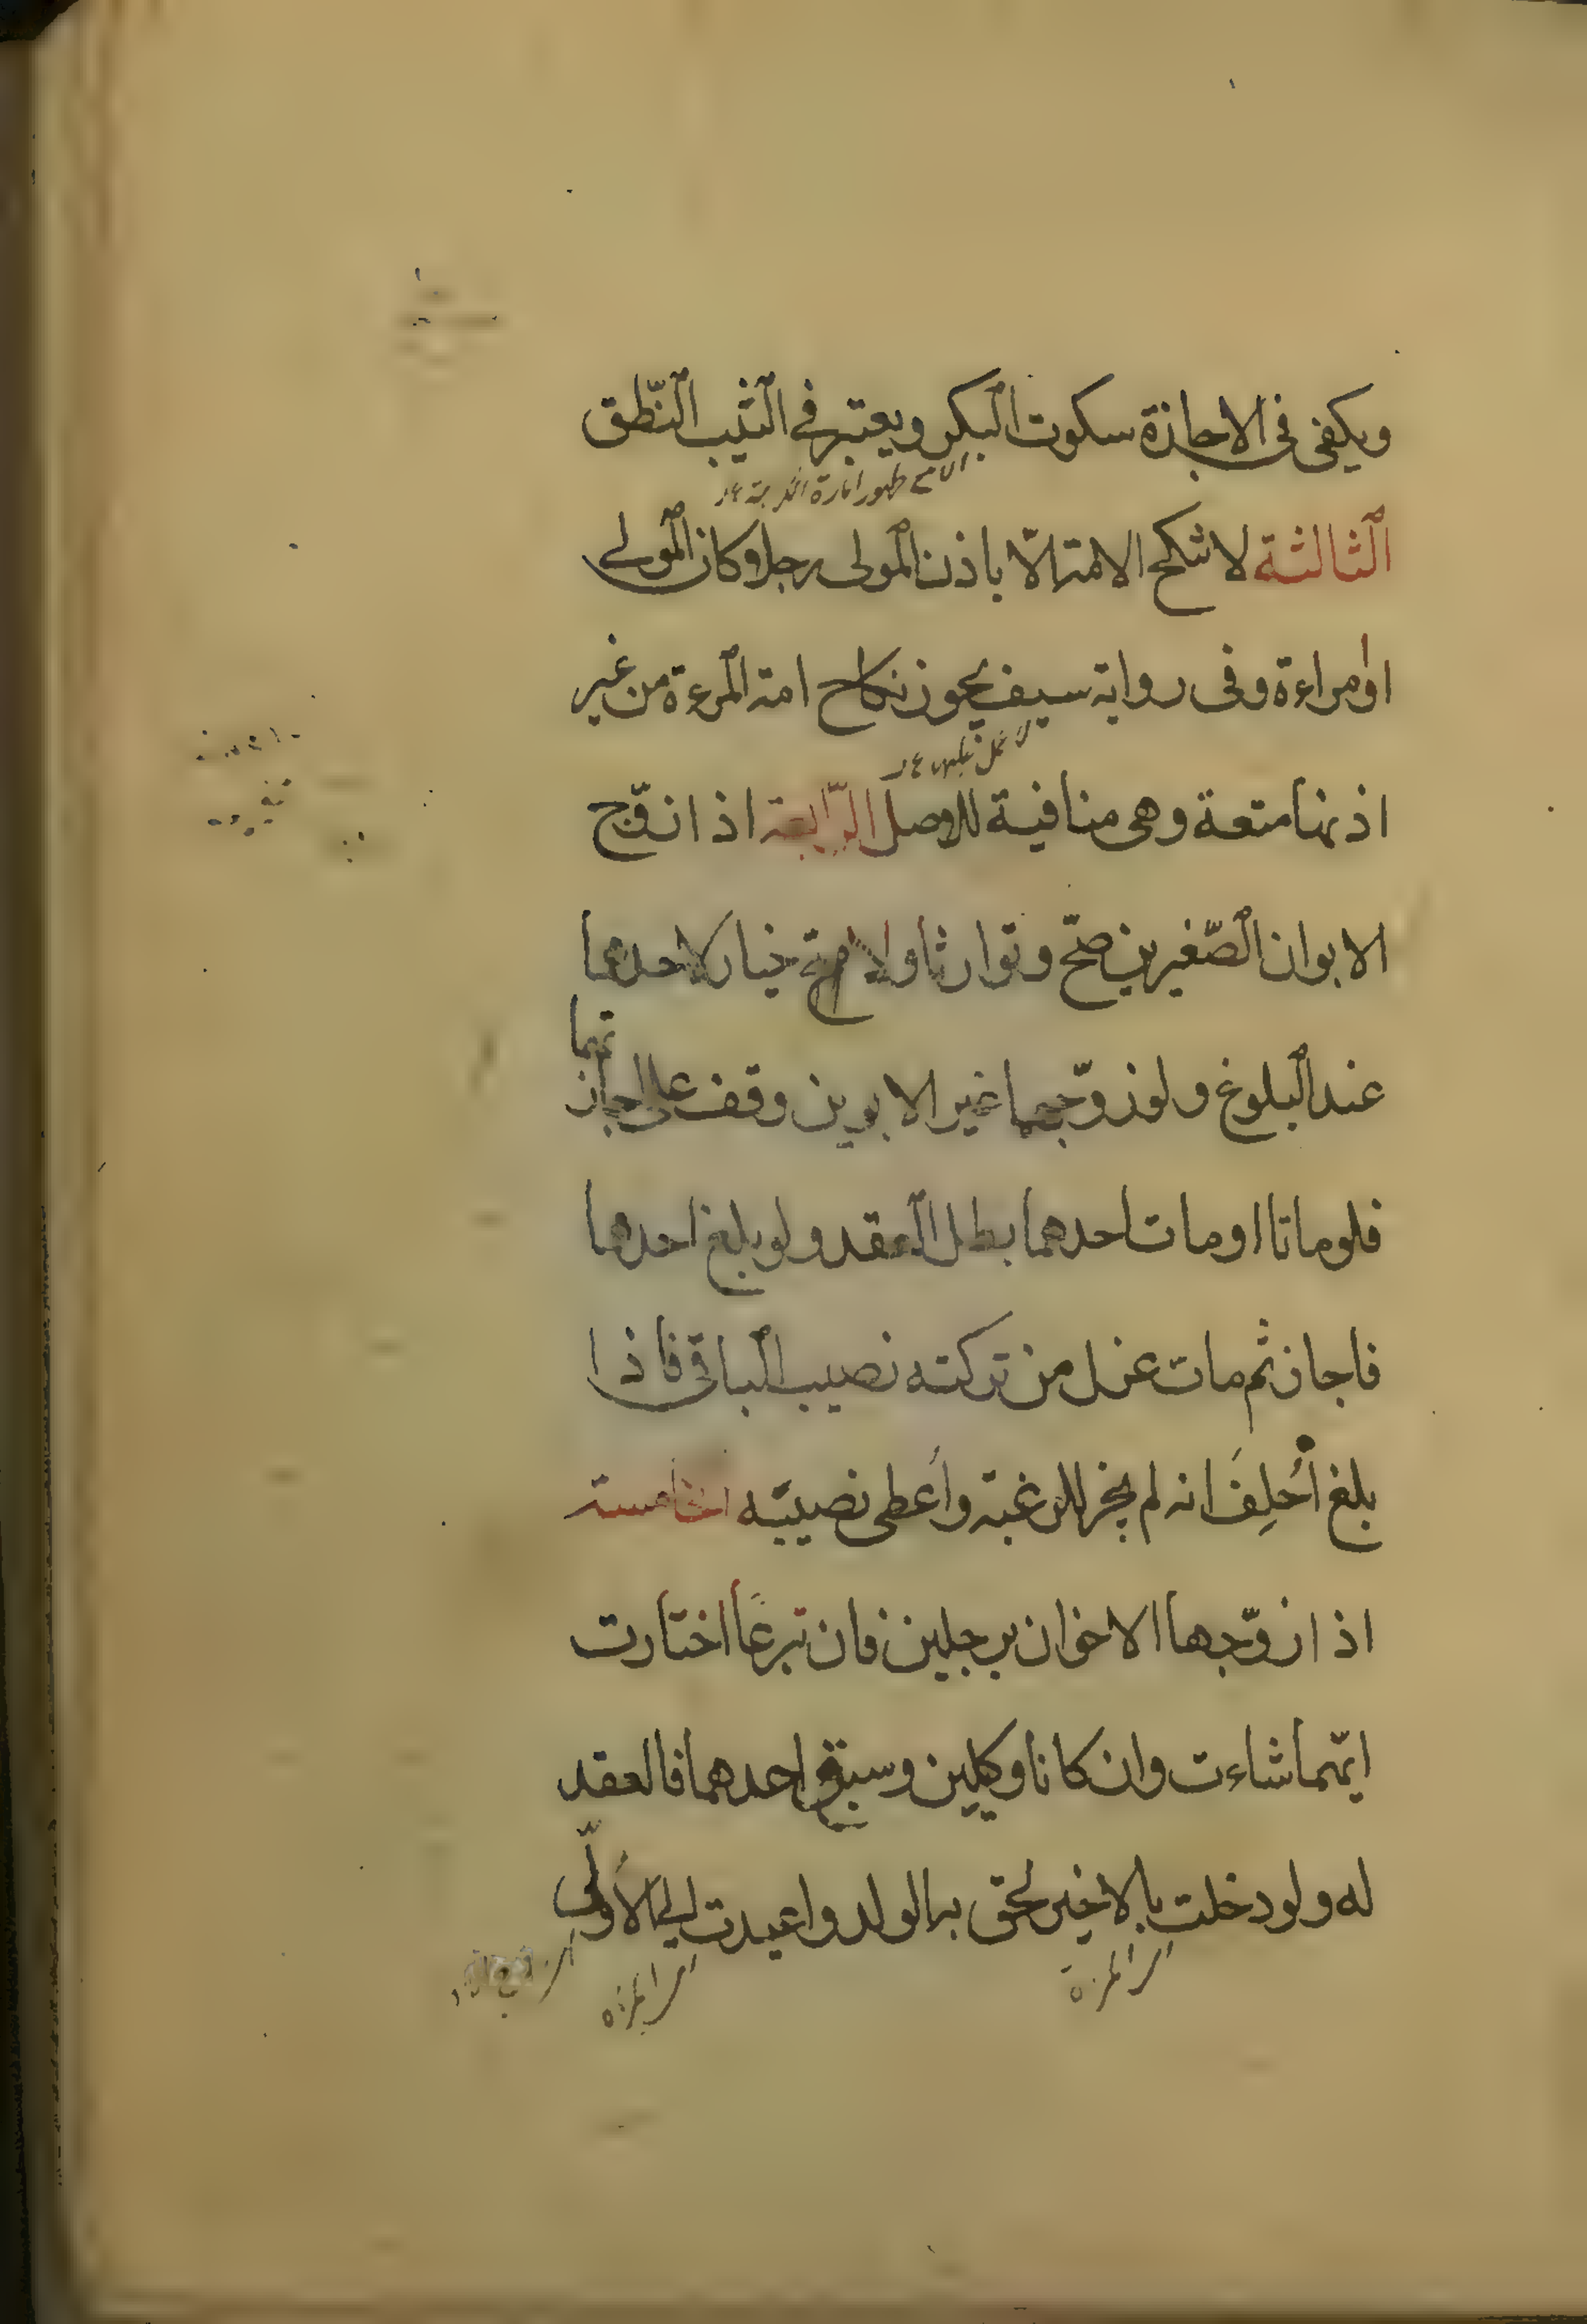 ويكفى فى الاجازة سكوت البكر ويعتبر في الثيب النّطق
الثالثة لا تنكح الامة الّا باذن المولى رجلا وكان المولى
او امراءة وفى رواية سيف يجوز نكاح امة المرءة من غير
اذنها متعة وهى منافية للاصل الرّابعة اذا زوّج
الابوان الصّغيرين صحّ وتوارثا ولا خيار لاحدهما
عند البلوغ ولو زوّجهما غير الابوين وقف على اجازتهما
فلو ماتا او مات احدهما بطل العقد ولو بلغ احدهما
فاجاز ثم مات عزل من تركته نصيب الباقى فاذا
بلغ أُحلِفَ انه لم يجز للرغبة وأعطى نصيبه الخامسة
اذا زوّجها الاخوان برجلين فان تبرعًا اختارت
ايّهما شاءت وان كانا وكيلين وسبق احدهما فالعقد
له ولو دخلت بالاخير لحق به الولد واعيدت الى الأوّل
اى المرأة
اى المرأة